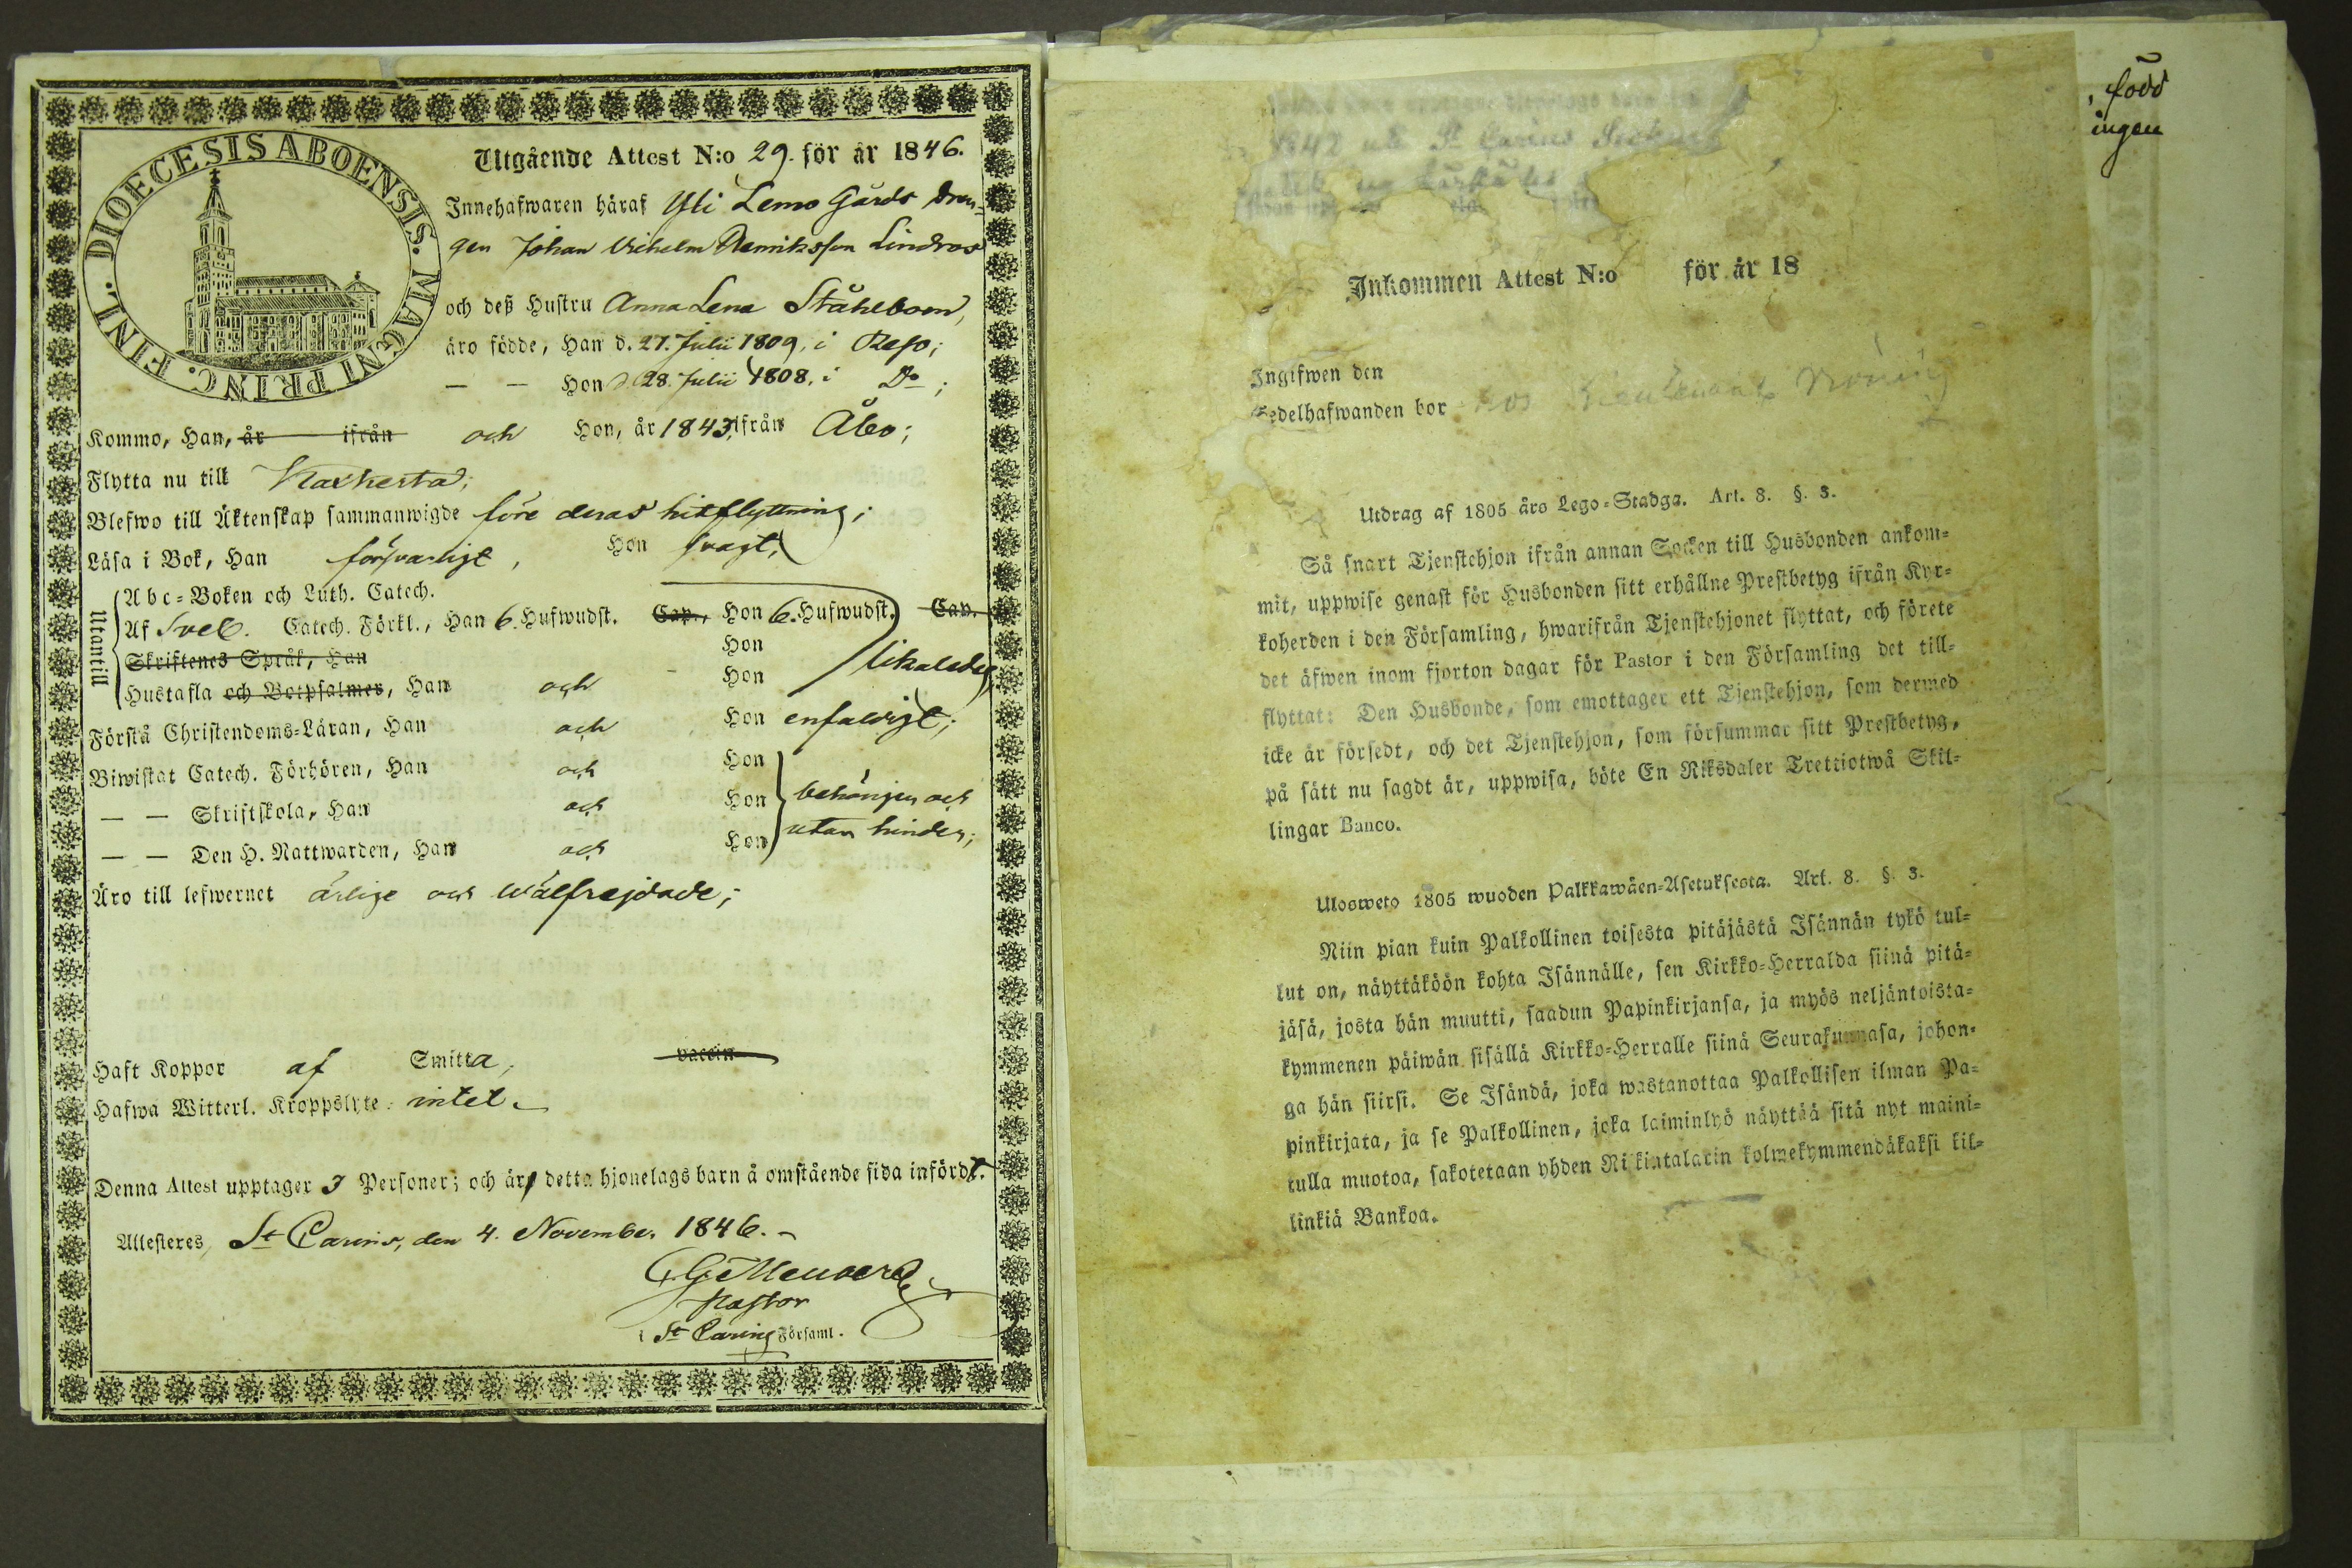 DIOECESIS ABOENSIS. MAGNI PRINC. FINL.
Utgående Attest N:o 29. för år 1846.
Innehafwaren häraf Yli Lemo Gårds dren-
gen Johan Vilhelm Henriksson Lindroos
och deß Hustru Anna Lena Ståhlbom,
äro födde, Han d. 27. Julii 1809, i Reso;
— — Hon d. 28. Julii 1808, i Do;
Kommo, Han, år ifrån och Hon, år 1843, ifrån Åbo;
Flytta nu till
Blefwo till Äktenskap sammanwigde före deras hitflyttning;
Läsa i Bok, Han försvarligt, Hon svagt,
Utantill
Abc-Boken och Luth. Catech.
Af Sveb. Catech. Förkl., Han 6. Hufwudst. Cap., Hon 6. Hufwudst. Cap.
Skriftenes Språk, Han Hon
Hustafla och Botpsalmer, Han och Hon likaledes
Förstå Christendoms-Läran, Han och Hon enfaldigt;
Biwistat Catech. Förhören, Han och Hon
— — Skriftskola, Han och Hon behörigen och
— — Den H. Nattwarden, Han och Hon utan hinder;
Äro till lefwernet ärlige och wälfrejdade;
Haft Koppor af Smitta, vaccin
Hafwa Witterl. Kroppslyte: intet.
Denna Attest upptager 3 Personer; och är detta hjonelags barn å omstående sida infördt.
Attesteres, St Carins, den 4. November 1846.
Pastor
i St Carins Församl.
1842 St Carins
Inkommen Attest N:o för år 18
Ingifwen den
Sedelhafwanden bor hos Lieutenant
Utdrag af 1805 års Lego-Stadga. Art. 8. §. 3.
Så snart Tjenstehjon ifrån annan Socken till Husbonden ankom-
mit, uppwise genast för Husbonden sitt erhållne Prestbetyg ifrån Kyr-
koherden i den Församling, hwarifrån Tjenstehjonet flyttat, och förete
det äfwen inom fjorton dagar för Pastor i den Församling det till-
flyttat: Den Husbonde, som emottager ett Tjenstehjon, som dermed
icke är försedt, och det Tjenstehjon, som försummar sitt Prestbetyg,
på sätt nu sagdt är, uppwisa, böte En Riksdaler Trettiotwå Skil-
lingar Banco.
Ulosweto 1805 wuoden Palkkawäen-Asetuksesta. Art. 8. §. 3.
Niin pian kuin Palkollinen toisesta pitäjästä Isännän tykö tul-
lut on, näyttäköön kohta Isännälle, sen Kirkko-Herralda siinä pitä-
jäsä, josta hän muutti, saadun Papinkirjansa, ja myös neljäntoista-
kymmenen päiwän sisällä Kirkko-Herralle siinä Seurakunnasa, johon-
ga hän siirsi. Se Isändä, joka wastanottaa Palkollisen ilman Pa-
pinkirjata, ja se Palkollinen, joka laiminlyö näyttää sitä nyt maini-
tulla muotoa, sakotetaan yhden Rikintalarin kolmekymmendäkaksi kil-
linkiä Bankoa.
, född
ingen